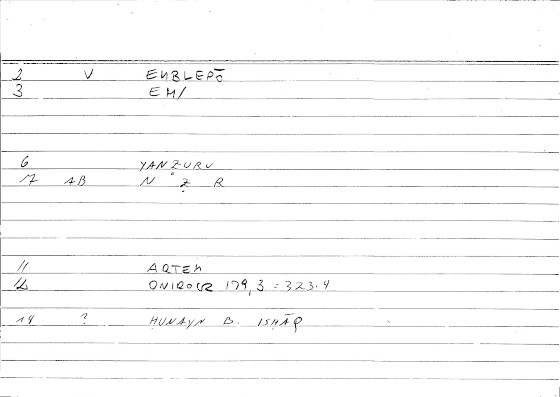 2 V EMBLEPŌ
3 EM/
6 YANZURU
7 AB N Ẓ R
11 ARTEM
12 ONIROCR 179,3 = 323.4
14 ? ḤUNAYN B. ISḤĀQ